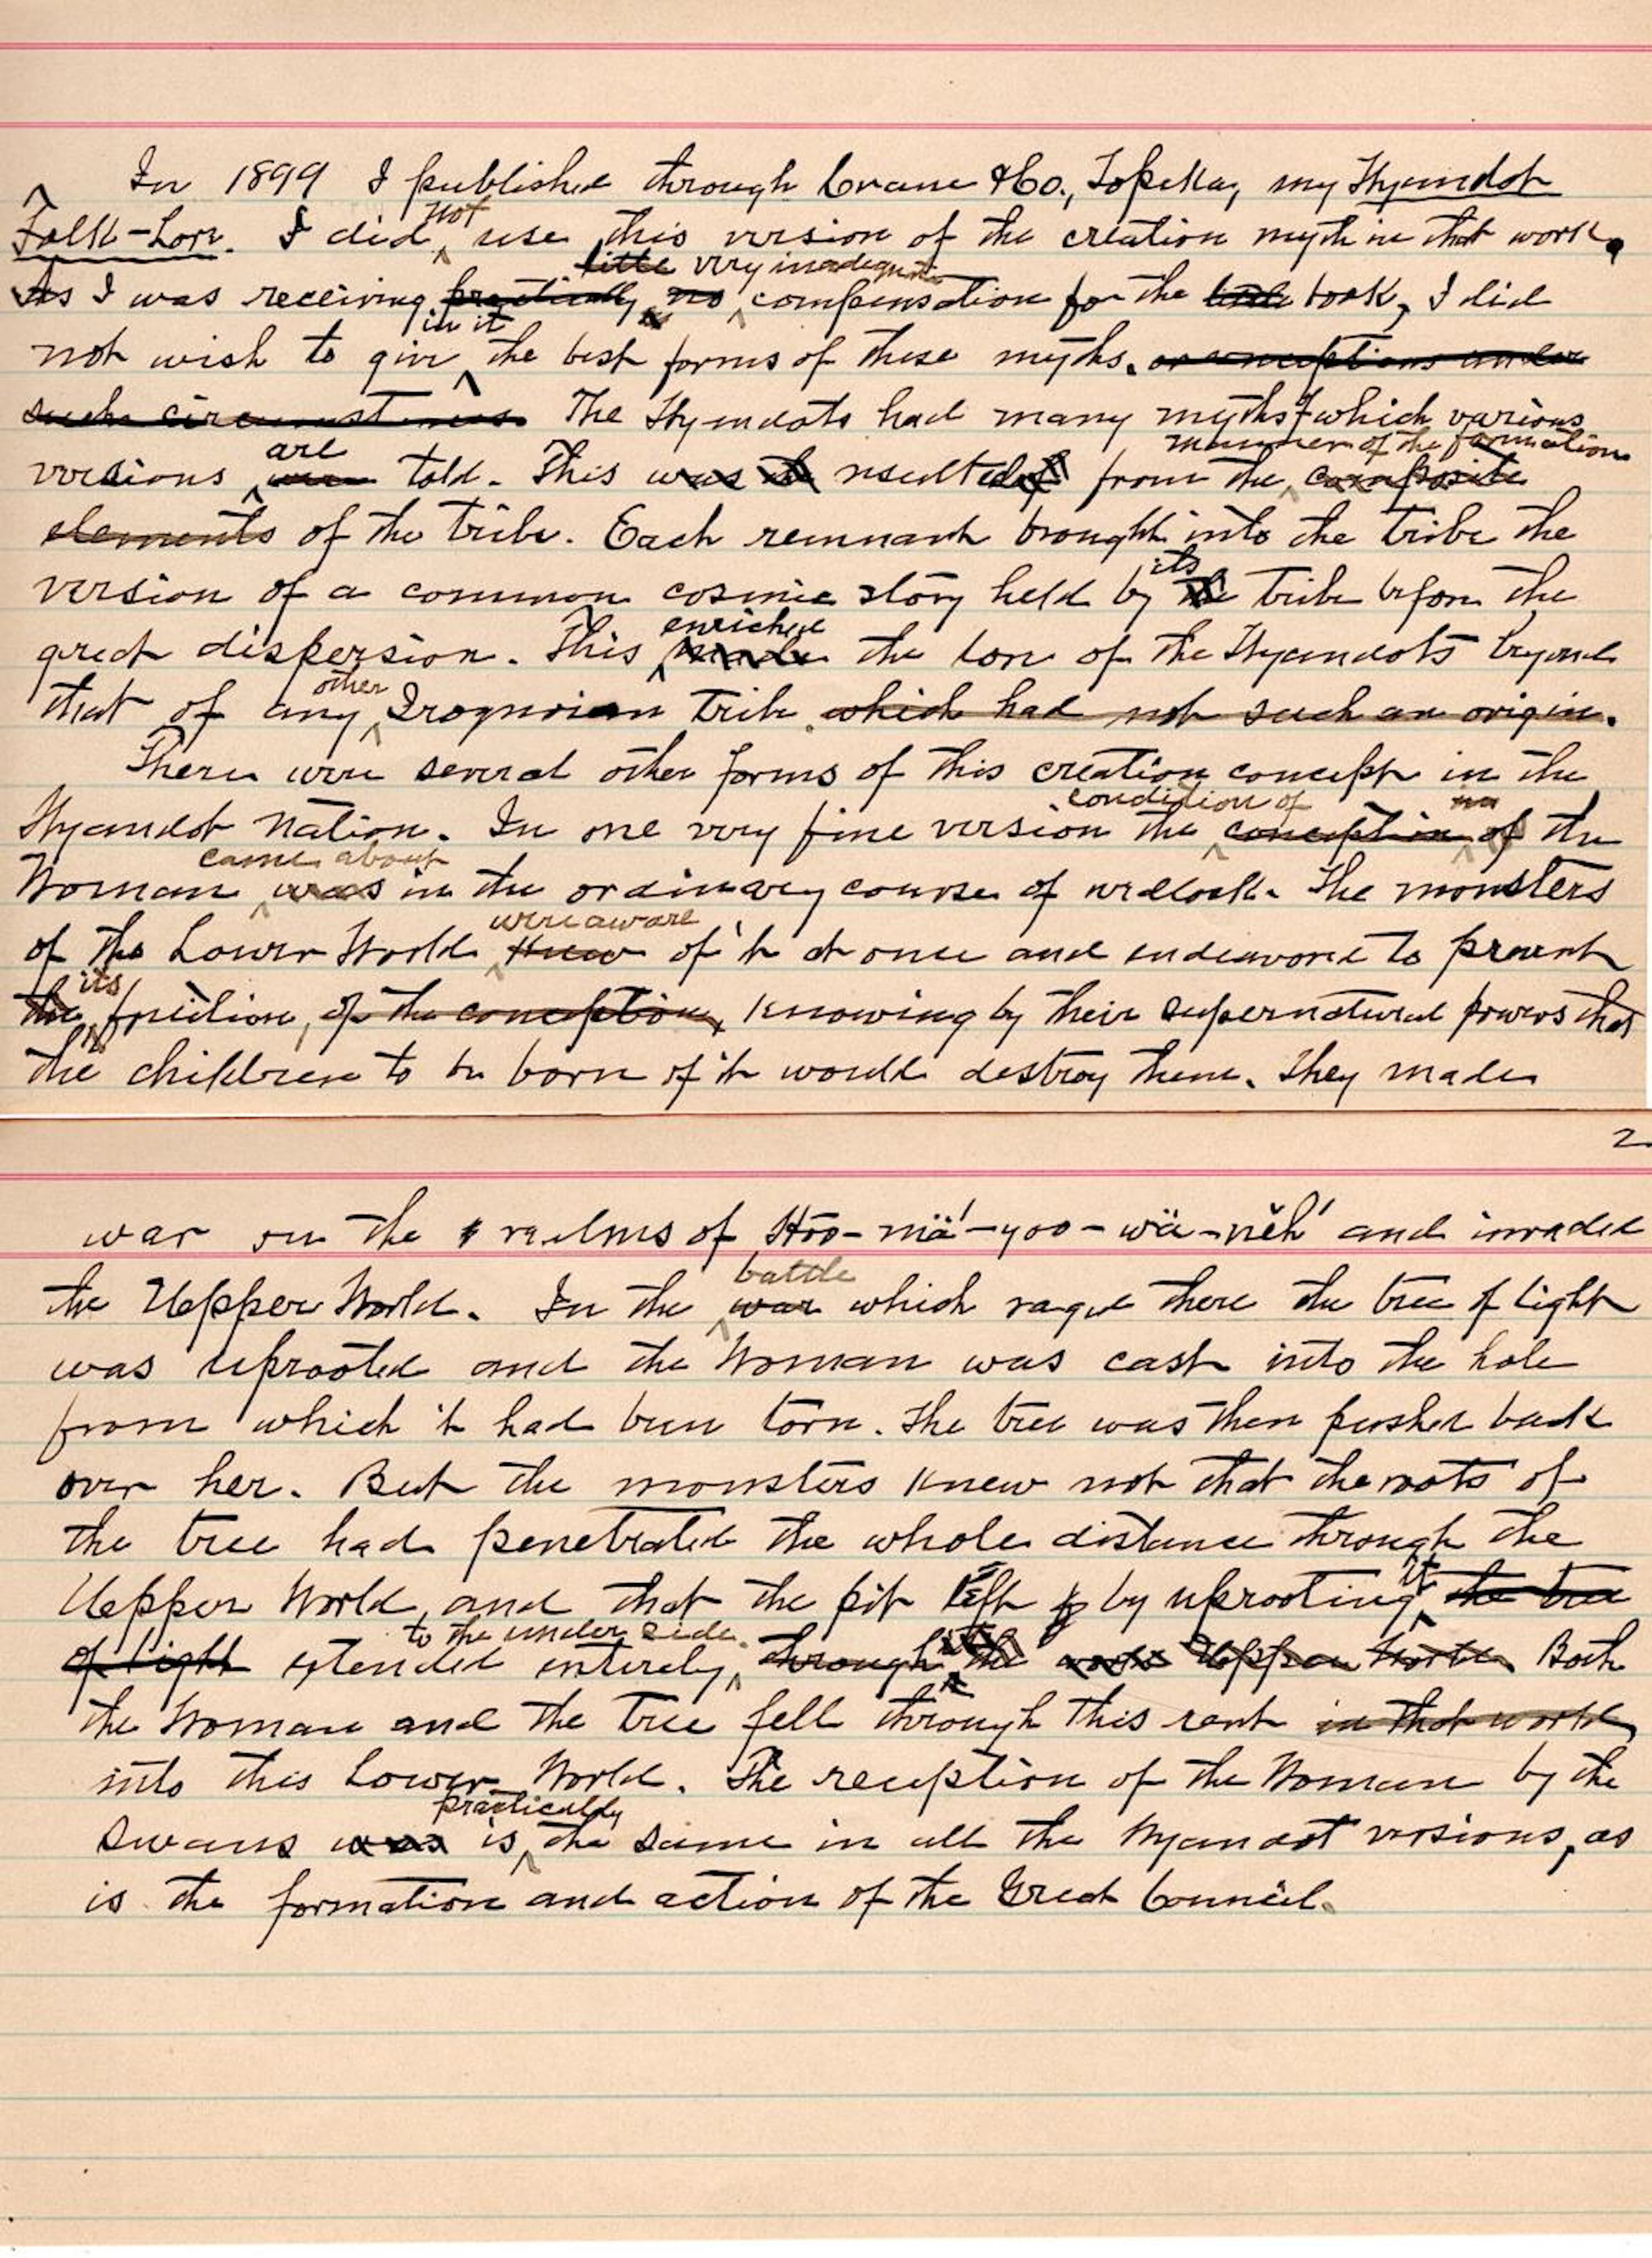 In 1899 I published through Crane & Co., Topeka, my Wyandot
Folk-Lore. I did not use this version of the creation myth in that work.
As I was receiving practically no little very inadequate compensation for the book, I did
not wish to give in it the best forms of these myths. or conceptions under
such circumstances. The Wyandots had many myths of which various
versions were are told. This was resulted from the composite manner of the formation
elements of the tribe. Each remnant brought into the tribe the
version of a common cosmic story held by the its tribe before the
great dispersion. This made enriched the lore of the Wyandots beyond
that of any other Iroquoian tribe which had not such an origin.
There were several other forms of this creation concept in the
Wyandot Nation. In one very fine version the conception condition of of the
Woman was came about in the ordinary course of wedlock. The monsters
of the Lower World knew were aware of it at once and endeavored to prevent
the its fruition, of the conception, knowing by their supernatural powers that
the children to be born of it would destroy them. They made
2
war on the realms of Hōō-mä´-yoo-wä-nĕh´ and invaded
the Upper World. In the war battle which raged there the tree of light
was uprooted and the Woman was cast into the hole
from which it had been torn. The tree was then pushed back
over her. But the monsters knew not that the roots of
the tree had penetrated the whole distance through the
Upper World, and that the pit left by uprooting it the tree
of light extended entirely to the under side. through the Upper World. Both
the Woman and the tree fell through this rent in that world
into this Lower World. The reception of the Woman by the
Swans was is practically the same in all the Wyandot versions, as
is the formation and action of the Great Council.